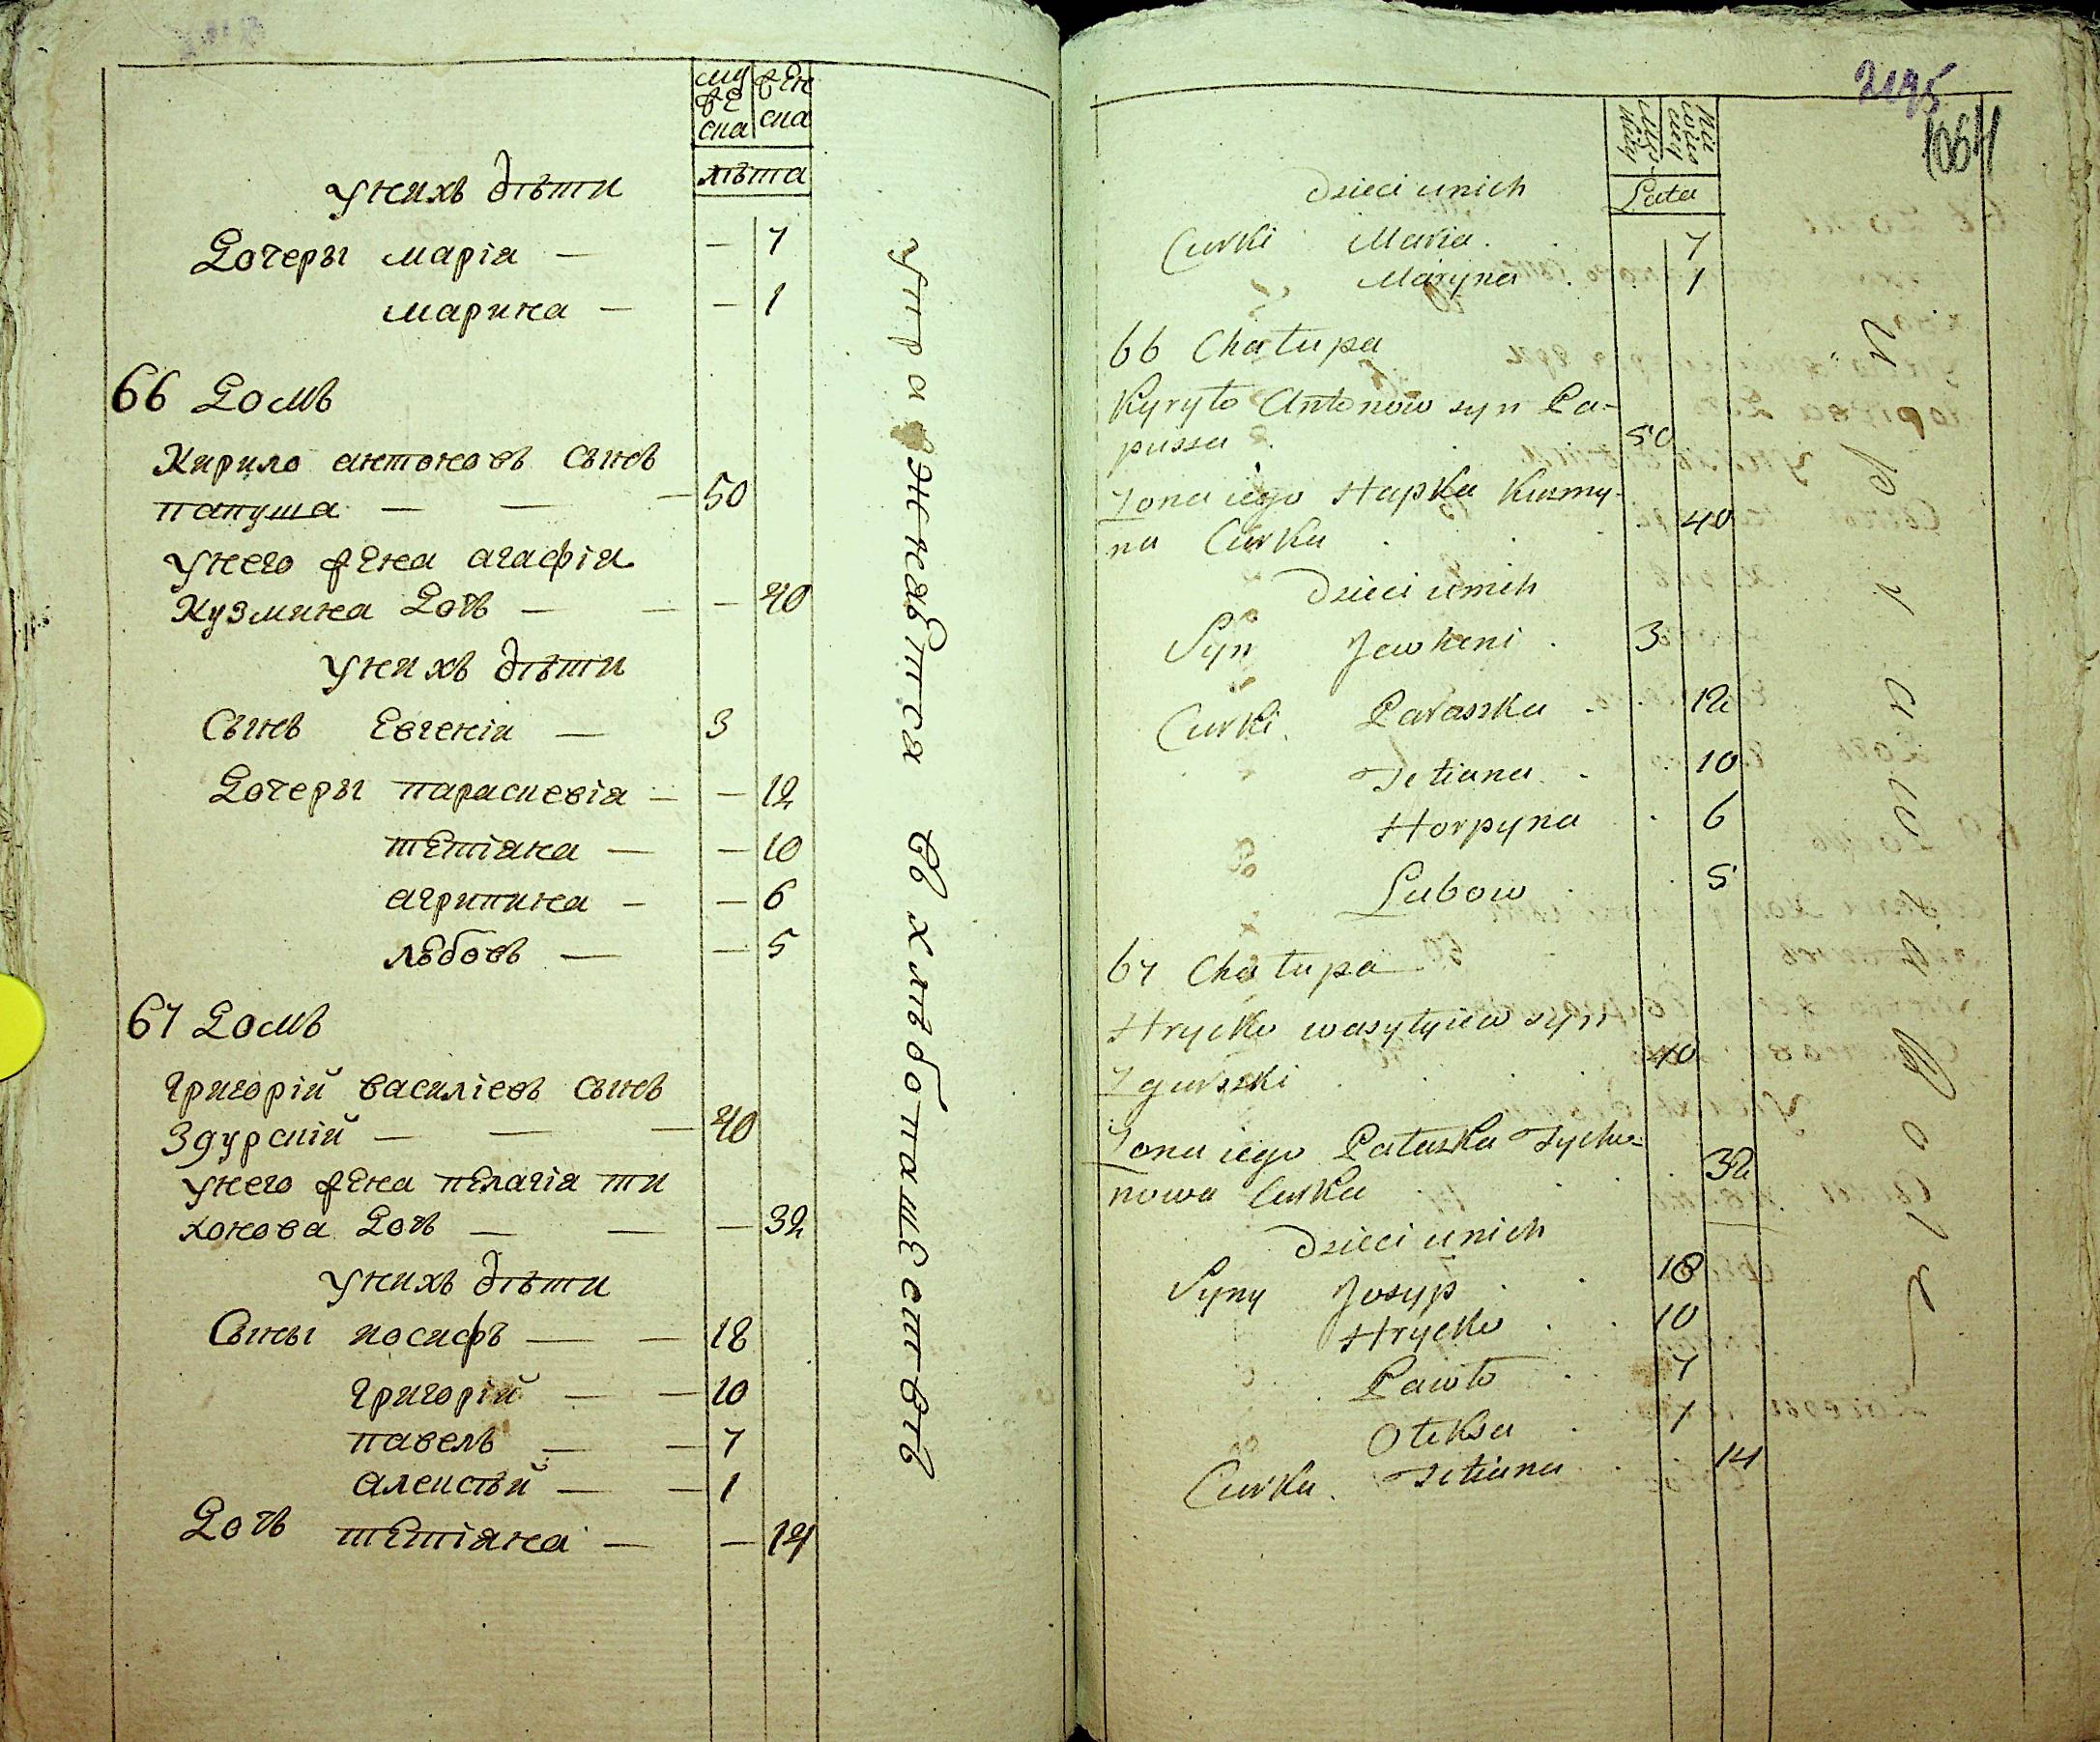 муже
ска
женска
лѣта
у нихъ дѣти
Дочеры мария — — 7
марина — — 1
66 Домъ
Кирило антоновъ сынъ
папуша — — — 50
у него жена агафія
Кузмина Дочь — — — 40
у нихъ дѣти
Сынъ Евгеній — 3
Дочеры параскевія — — 12
тетіяна — — 10
агрипина — — 6
любовь — — 5
67 Домъ
григорій василіевъ сынъ
Згурскій — — — 40
у него жена пелагія ти
хонова Дочь — — — 32
у нихъ дѣти
Сыны иосифъ — — 18
григорій — — 10
павелъ — — 7
алексѣй — — 1
Дочь тетіяна — — 14
упражняется въ хлѣбопашествѣ
2195
1064
Lata
Dzieci unich
Curki Maria . 7
Maryna . 1
66 Chałupa
Kyryło Antonow syn Pa-
pusza . 50
Żona iego Hapka Kuzmy-
na Curka . 40
Dzieci unich
Syn Jewheni . 3
Curki Paraszka . 12
Tetiana . 10
Horpyna . 6
Lubow . 5
67 Chałupa
Hrycko wasylyiew syn
Zgurski . 40
Żona iego Pałaszka Tycho-
nowa Curka . 32
Dzieci unich
Syny Josyp . 18
Hrycko . 10
Pawło . 7
Ołeksa . 1
Curka Tetiana . 14